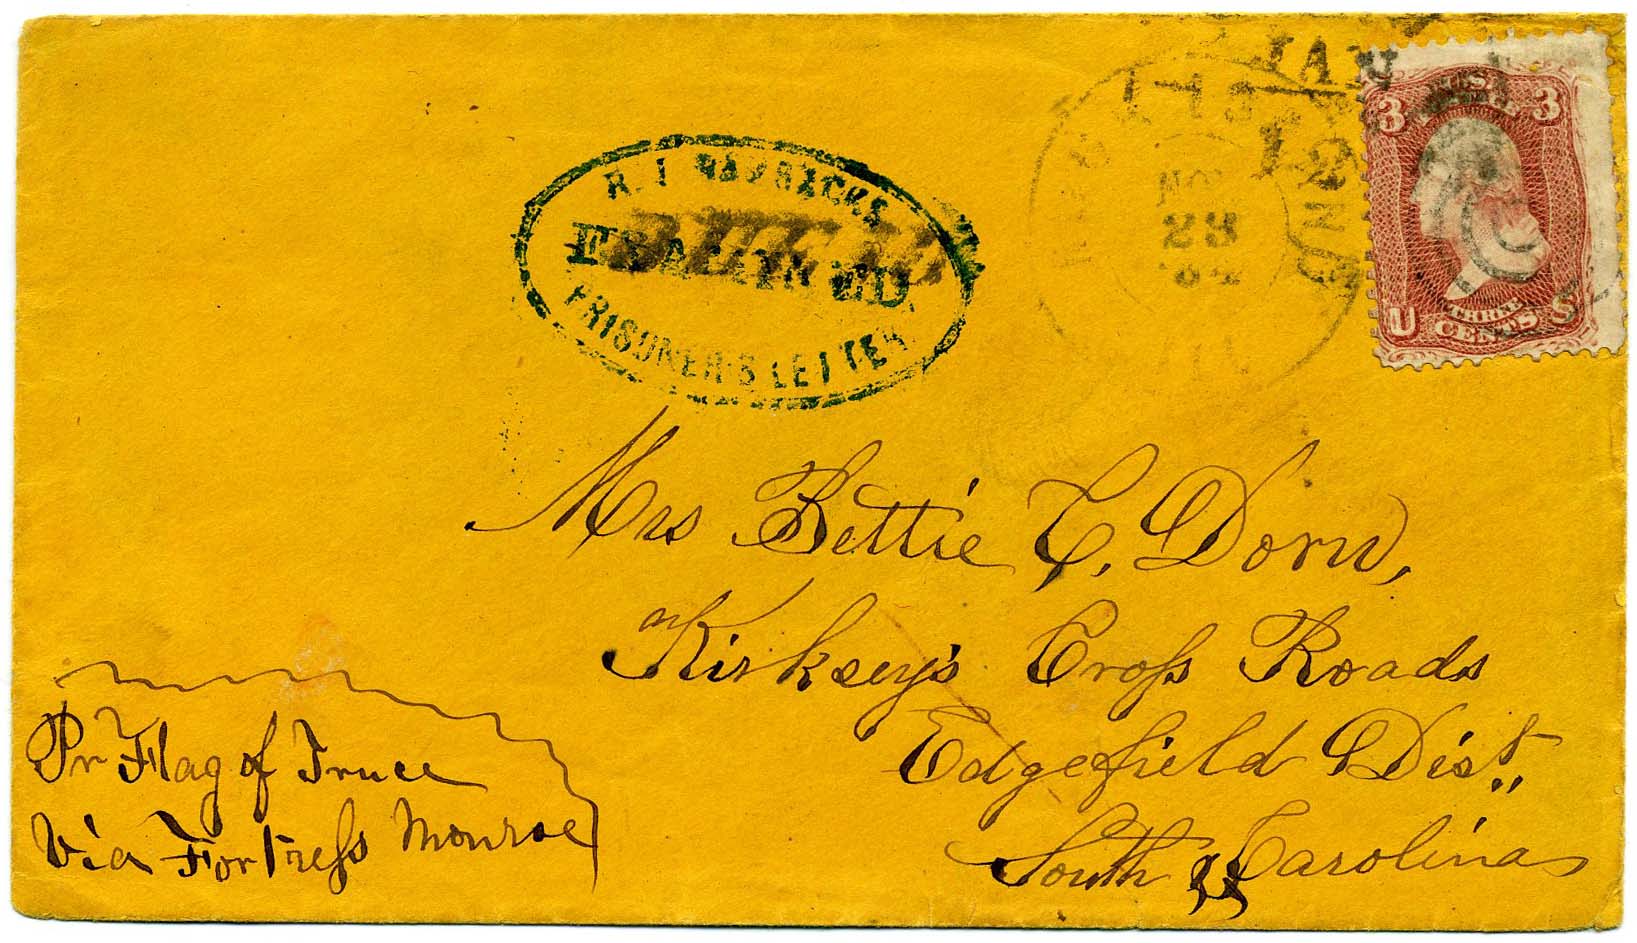 JAN
12
NOV
28
R. I. BARRACKS
EXAMINED
PRISONER'S LETTER.
DUE
3 U.S. 3
THREE
U CENTS S
Mrs Bettie C. Dorn,
Kirksey's Cross Roads
Edgefield Dist.,
South Carolina
Pr Flag of Truce
Via Fortress Monroe